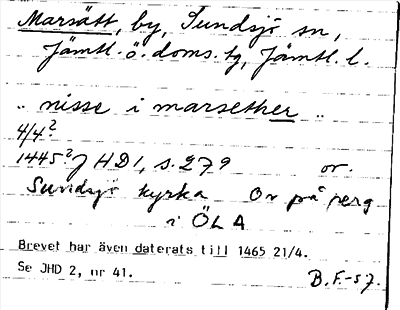 Marsätt, by, Sundsjö sn,
Jämtl. ö. doms. tg, Jämtl. l.
.. nisse i marsether ..
4/4?
1445? JHD1, s. 279 or.
Sundsjö kyrka Or på perg
i ÖLA
Brevet har även daterats till 1465 21/4.
Se JHD 2, nr 41.
B.F.-57.